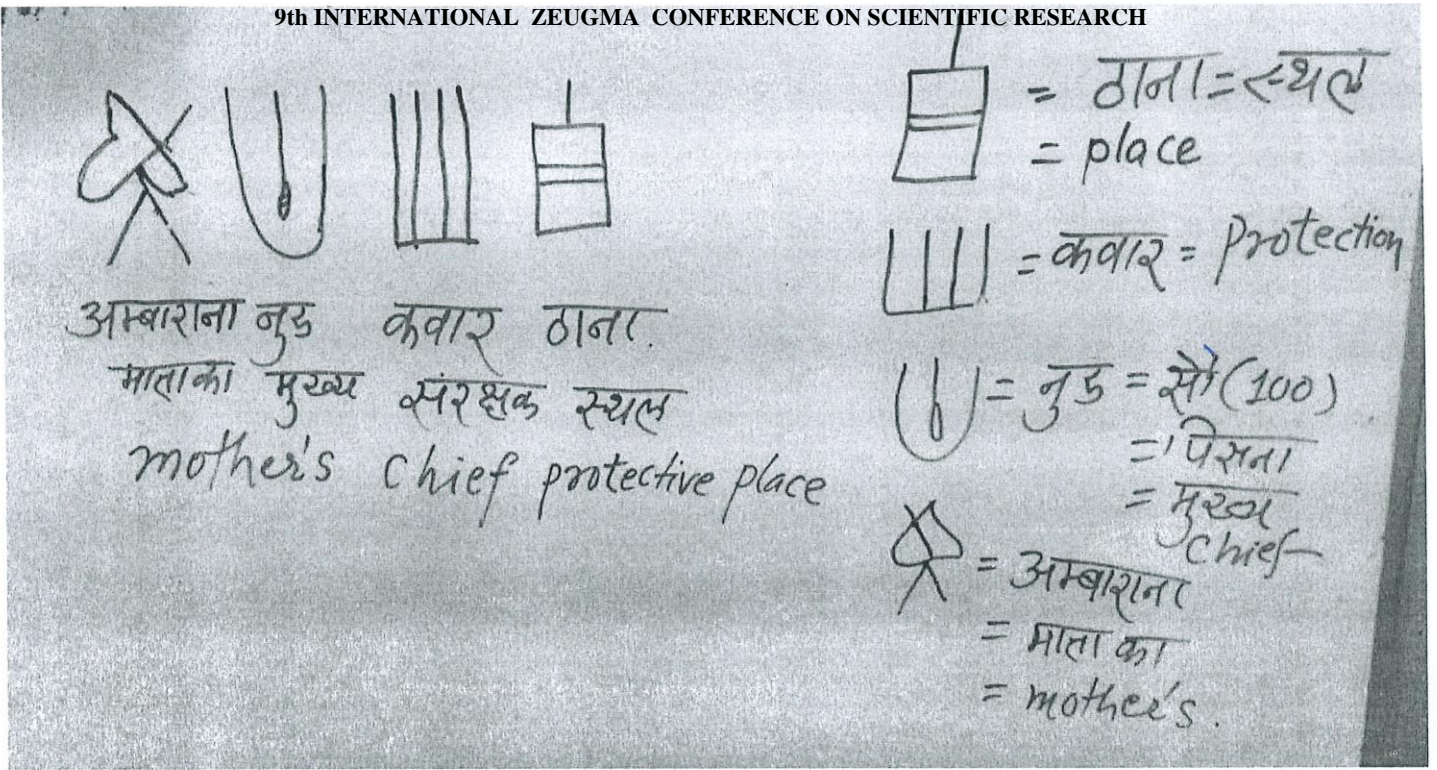 9th INTERNATIONAL ZEUGMA CONFERENCE ON SCIENTIFIC RESEARCH
अम्बाराना नुड कवार ठाना.
माता का मुख्य संरक्षक स्थल
mother's chief protective place
= ठाना = स्थल
= place
= कवार = Protection
= नुड = सौ (100)
= पिसना
= मुख्य
chief
= अम्बाराना
= माता का
= mother's.